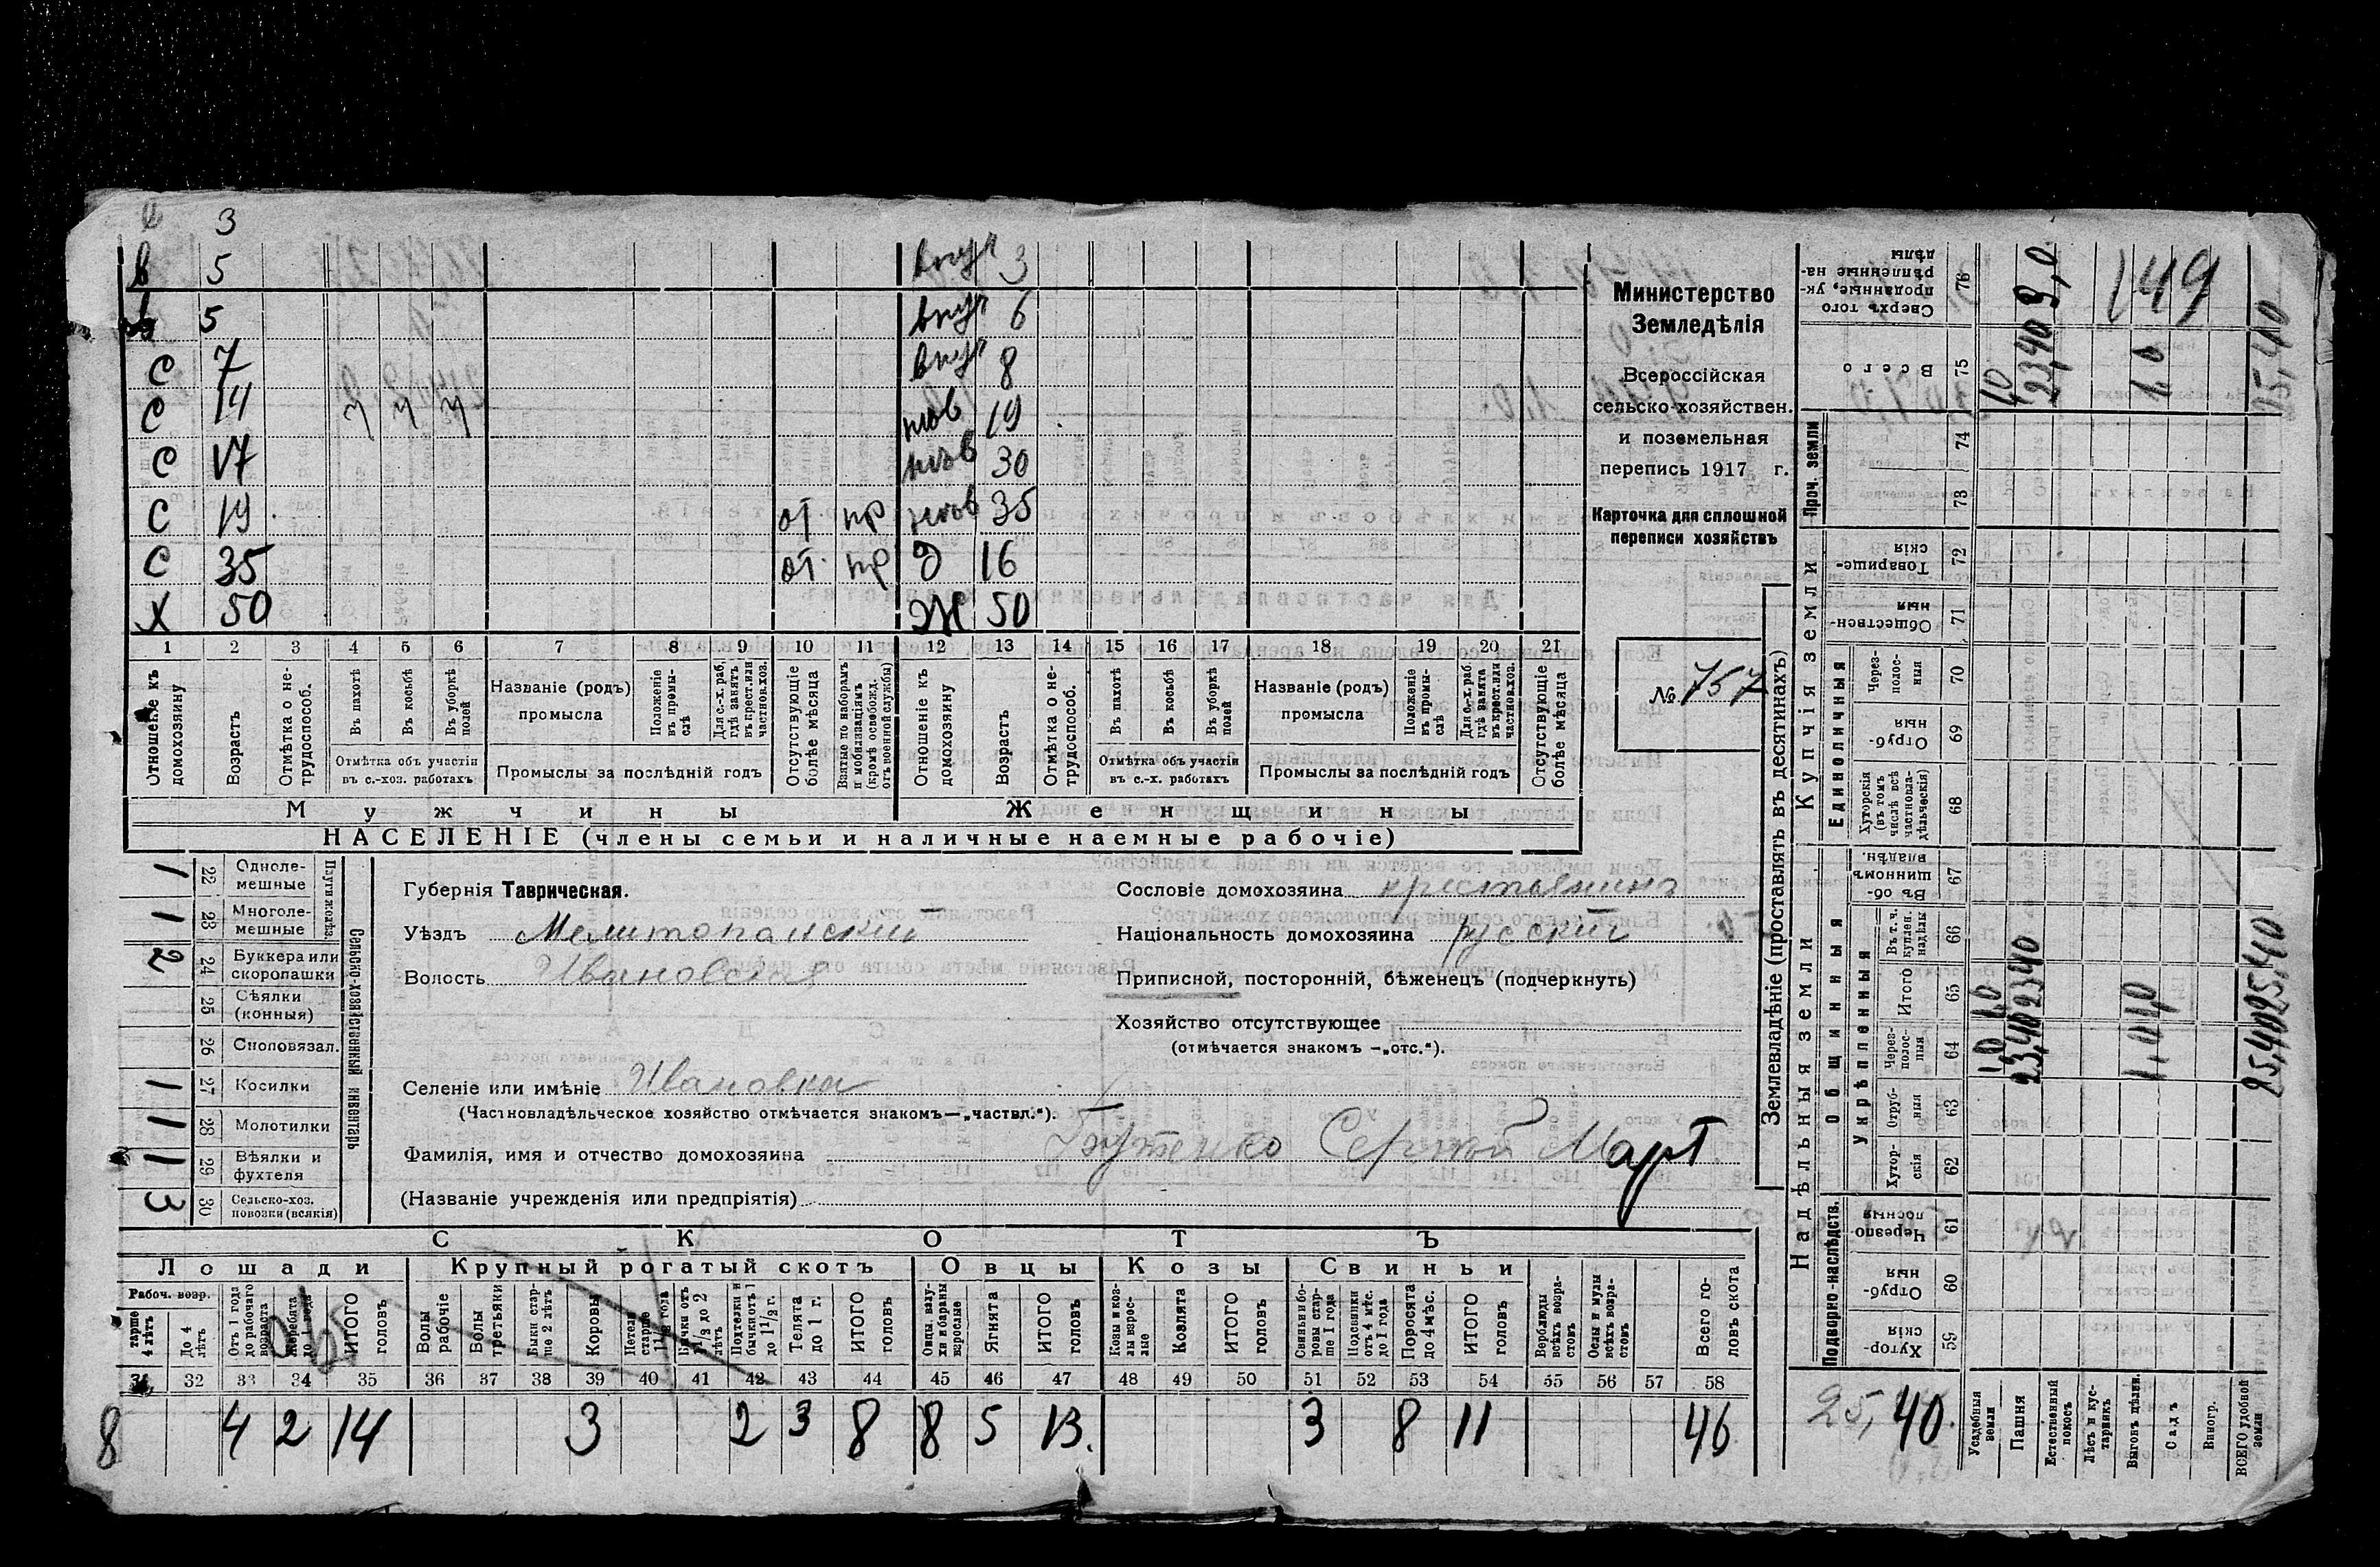 3
в 5 внуч 3
в 5 внуч 6
С 7 внуч 8
С 14 ч ч ч нев 19
С 17 нев 30
С 19 от пр нев 35
С 35 от. пр Д 16
Х 50 Ж 50
1 2 3 4 5 6 7 8 9 10 11 12 13 14 15 16 17 18 19 20 21
Отношеніе къ домохозяину
Возрастъ
Отмѣтка о нетрудоспособ.
Въ пахотѣ
Въ косьбѣ
Въ уборкѣ полей
Отмѣтка объ участіи въ с.-хоз. работахъ
Названіе (родъ) промысла
Положеніе въ промыслѣ
Для с.-х. раб, гдѣ занятъ въ крест. или частнов. хоз.
Промыслы за послѣдній годъ
Отсутствующіе болѣе мѣсяца
Взятые по наборамъ и мобилизаціямъ (кромѣ освобожд. отъ военной службы)
Отношеніе къ домохозяину
Возрастъ
Отмѣтка о нетрудоспособ.
Въ пахотѣ
Въ косьбѣ
Въ уборкѣ полей
Отмѣтка объ участіи въ с.-х. работахъ
Названіе (родъ) промысла
Положеніе въ промыслѣ
Для с.-х. раб. гдѣ занята въ крест. или частнов. хоз.
Промыслы за послѣдній годъ
Отсутствующіе болѣе мѣсяца
Мужчины Женщины
НАСЕЛЕНІЕ (члены семьи и наличные наемные рабочіе)
Министерство
Земледѣлія
Всероссійская
сельско-хозяйствен.
и поземельная
перепись 1917 г.
Карточка для сплошной
переписи хозяйствъ
№ 757
Сельско-хозяйственный инвентарь
Плуги желѣз.
1 22 Однолемешные
1 23 Многолемешные
2 24 Буккера или скоропашки
25 Сѣялки (конныя)
26 Сноповязал.
1 27 Косилки
1 28 Молотилки
1 29 Вѣялки и фухтеля
3 30 Сельско-хоз. повозки (всякія)
Губернія Таврическая.
Уѣздъ Мелитопольский
Волость Ивановская
Селеніе или имѣніе Ивановка
(Частновладѣльческое хозяйство отмѣчается знакомъ—„частвл.“).
Фамилія, имя и отчество домохозяина Сергѣй Март
(Названіе учрежденія или предпріятія)
Сословіе домохозяина крестьянина
Національность домохозяина русский
Приписной, посторонній, бѣженецъ (подчеркнуть)
Хозяйство отсутствующее
(отмѣчается знакомъ —„отс.“).
СКОТЪ
Лошади Крупный рогатый скотъ Овцы Козы Свиньи
Рабоч. возр.
старше 4 лѣтъ
До 4 лѣтъ
Отъ 1 года до рабочаго возраста
Жеребята до 1 года
ИТОГО головъ
Волы рабочіе
Волы третьяки
Быки старше 2 лѣтъ
Коровы
Нетели старше 1 1/2 года
Бычки отъ 1 1/2 до 2 лѣтъ
Подтелки и бычки отъ 1 до 1 1/2 г.
Телята до 1 г.
ИТОГО головъ
Овцы, валухи и бараны взрослые
Ягнята
ИТОГО головъ
Козы и козлы взрослые
Козлята
ИТОГО головъ
Свиньи и боровы старше 1 года
Подсвинки отъ 4 мѣс. до 1 года
Поросята до 4 мѣс.
ИТОГО головъ
Верблюды всѣхъ возрастовъ
Ослы и мулы всѣхъ возрастовъ
Всего головъ скота
31 32 33 34 35 36 37 38 39 40 41 42 43 44 45 46 47 48 49 50 51 52 53 54 55 56 57 58
8 4 2 14 3 2 3 8 8 5 13. 3 8 11 46
Землевладѣніе (проставлять въ десятинахъ)
Надѣльныя земли Купчія земли Проч. земли
Подворно-наслѣдств. Общинныя Единоличныя
Укрѣпленныя
Сверхъ того проданные, укрѣпленные надѣлы 76 3,0 149
Всего 75 10 23,40 1,0 25,40
74
73
Товарищескія 72
Общественныя 71
Черезполосныя 70
Отрубныя 69
Хуторскія (въ томъ числѣ всѣ частновладѣльческія) 68
Въ общинномъ владѣн. 67
Въ т. ч. куплен. надѣлы 66
Итого 65 1,0 23,40 1,0 25,40
Черезполосныя 64 1,0 23,40 1,0 25,40
Отрубныя 63
Хуторскія 62
Черезполосныя 61
Отрубныя 60
Хуторскія 59
25,40.
Усадебныя земли
Пашня
Естественный покосъ
Лѣсъ и кустарникъ
Выгонъ цѣлин.
Садъ
Виногр.
ВСЕГО удобной земли